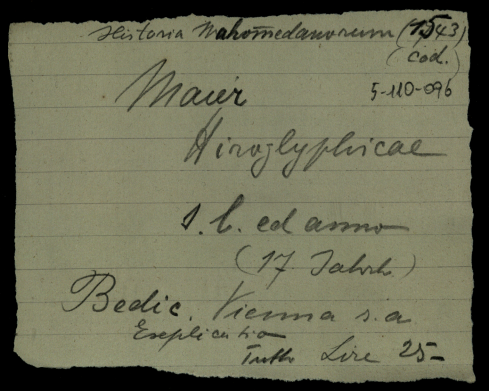 Historia Mahomedanorum (1543)
(cod.)
5-110-096
Maier
Hiroglyphicae
s. l. ed anno
(17 Jahrh.)
Bedic. Vienna s.a
Explicatio
Tutto Lire 25-